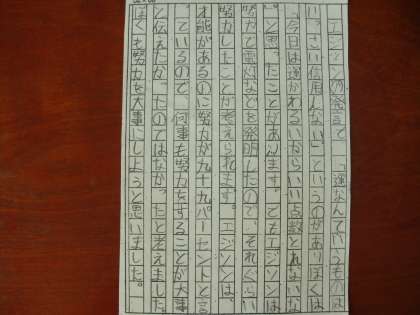 エジソンの発言で、「運なんていうものは
いっさい信用しない」というのがありぼくは
「今日は運がわるいからいい点数とれないな
」と思ったことがあります。でもエジソンは
努力で電灯などを発明したので、それぐらい
努力したことが考えられます。エジソンは、
才能があるのに努力が九十九パーセントと言
っているので、何事も努力をすることが大事
と伝えたかったのではなかったと考えました。
ぼくも努力を大事にしようと思いました。